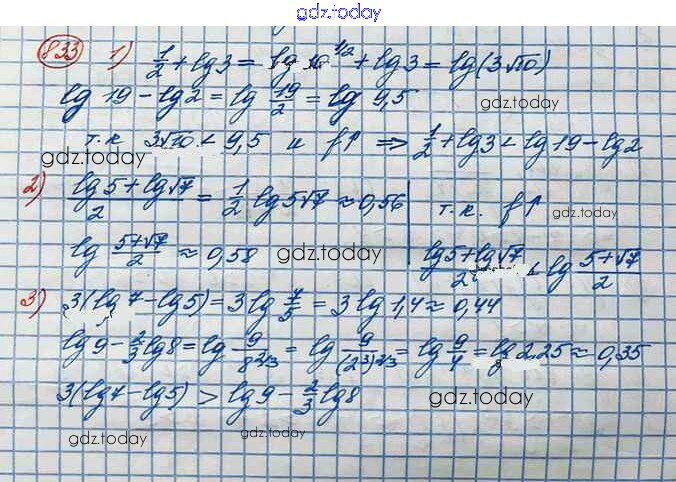 gdz.today
833 1) 1/2 + lg3 = lg 10^1/2 + lg3 = lg(3√10)
lg 19 - lg2 = lg 19/2 = lg 9,5
gdz.today
т.к 3√10 < 9,5 и f↑ ⇒ 1/2 + lg3 < lg19 - lg2
gdz.today
gdz.today
2) (lg5 + lg√7)/2 = 1/2 lg5√7 ≈ 0,56 | т.к. f↑
gdz.today
lg (5+√7)/2 ≈ 0,58 | (lg5 + lg√7)/2 < lg (5+√7)/2
gdz.today
3) 3(lg7 - lg5) = 3lg 7/5 = 3lg 1,4 ≈ 0,44
lg9 - 2/3 lg8 = lg 9/8^2/3 = lg 9/(2^3)^2/3 = lg 9/4 = lg 2,25 ≈ 0,35
3(lg7 - lg5) > lg9 - 2/3 lg8
gdz.today
gdz.today
gdz.today
gdz.today